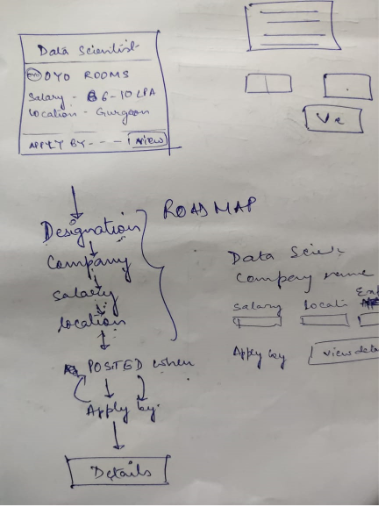 Data Scientist
OYO ROOMS
Salary - 6-10 LPA
Location - Gurgaon
APPLY BY - - - View
Designation
Company
salary
location
POSTED when
Apply by
Details
ROADMAP
Data Scien
Company name
salary Locati
Apply by view deta